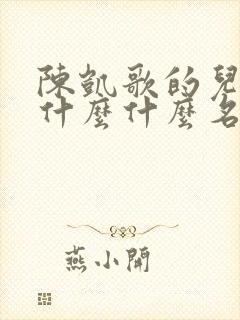 陳凱歌的兒
什麼什麼名
燕小開